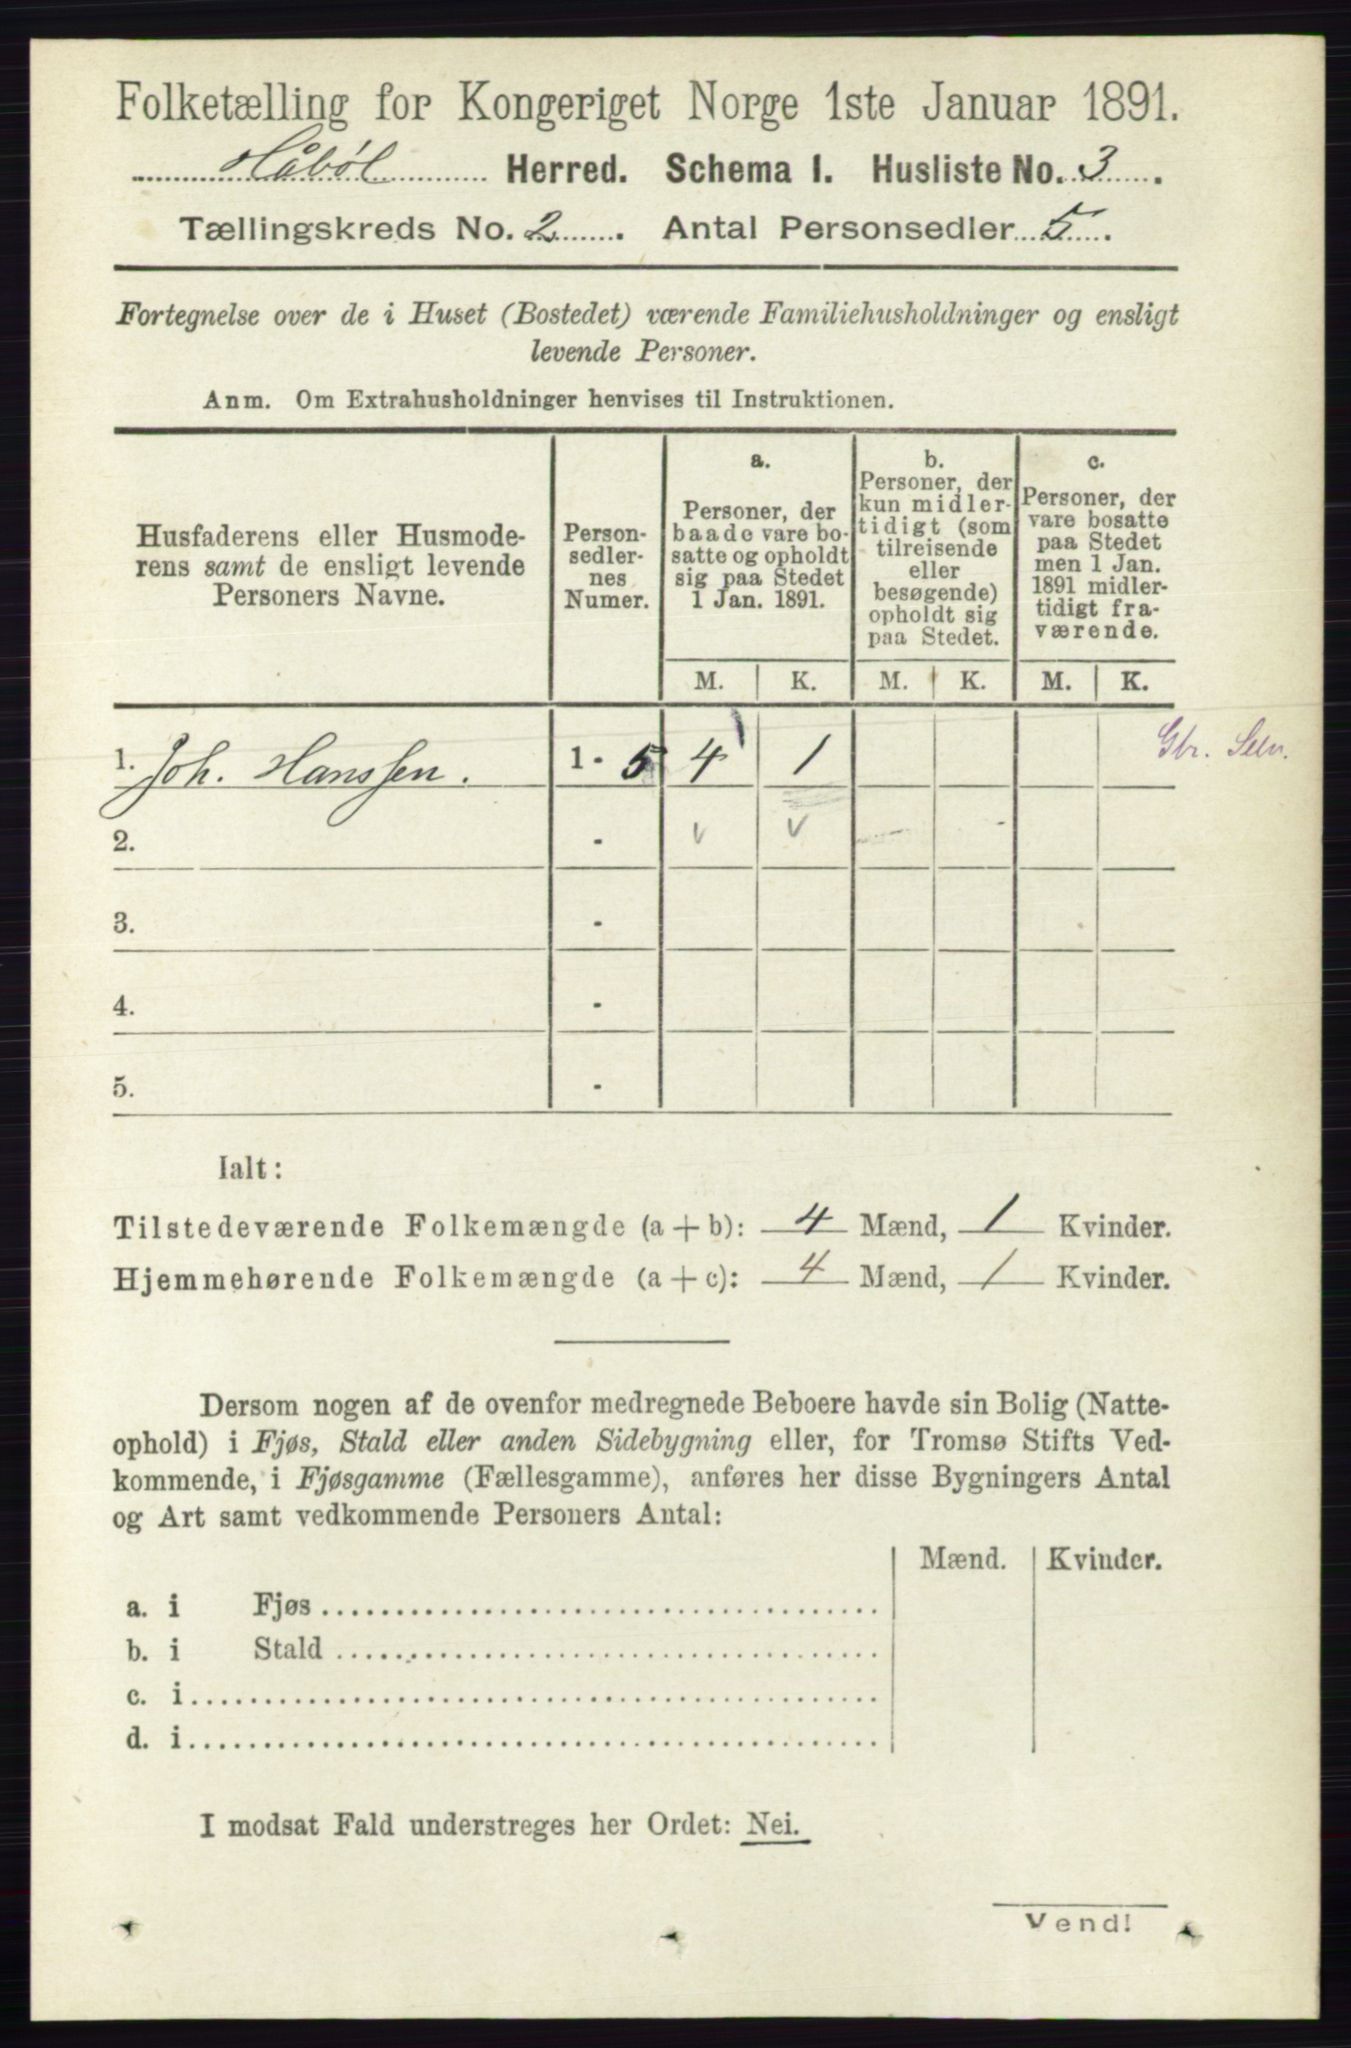 Folketælling for Kongeriget Norge 1ste Januar 1891.
Håbøl Herred. Schema I. Husliste No. 3.
Tællingskreds No. 2. Antal Personsedler 5.
Fortegnelse over de i Huset (Bostedet) værende Familiehusholdninger og ensligt
levende Personer.
Anm. Om Extrahusholdninger henvises til Instruktionen.
Husfaderens eller Husmode-
rens samt de ensligt levende
Personers Navne.
Person-
sedler-
nes
Numer.
a.
Personer, der
baade vare bo-
satte og opholdt
sig paa Stedet
1 Jan. 1891.
b.
Personer, der
kun midler-
tidigt (som
tilreisende
eller
besøgende)
opholdt sig
paa Stedet.
c.
Personer, der
vare bosatte
paa Stedet
men 1 Jan.
1891 midler-
tidigt fra-
værende.
M. K. M. K. M. K.
1. Joh. Hanssen. 1 - 5 4 1 Gbr. Selv.
2. - v v
3. -
4. -
5. -
Ialt:
Tilstedeværende Folkemængde (a + b): 4 Mænd, 1 Kvinder.
Hjemmehørende Folkemængde (a + c): 4 Mænd, 1 Kvinder.
Dersom nogen af de ovenfor medregnede Beboere havde sin Bolig (Natte-
ophold) i Fjøs, Stald eller anden Sidebygning eller, for Tromsø Stifts Ved-
kommende, i Fjøsgamme (Fællesgamme), anføres her disse Bygningers Antal
og Art samt vedkommende Personers Antal:
Mænd. Kvinder.
a. i Fjøs
b. i Stald
c. i
d. i
I modsat Fald understreges her Ordet: Nei.
Vend!